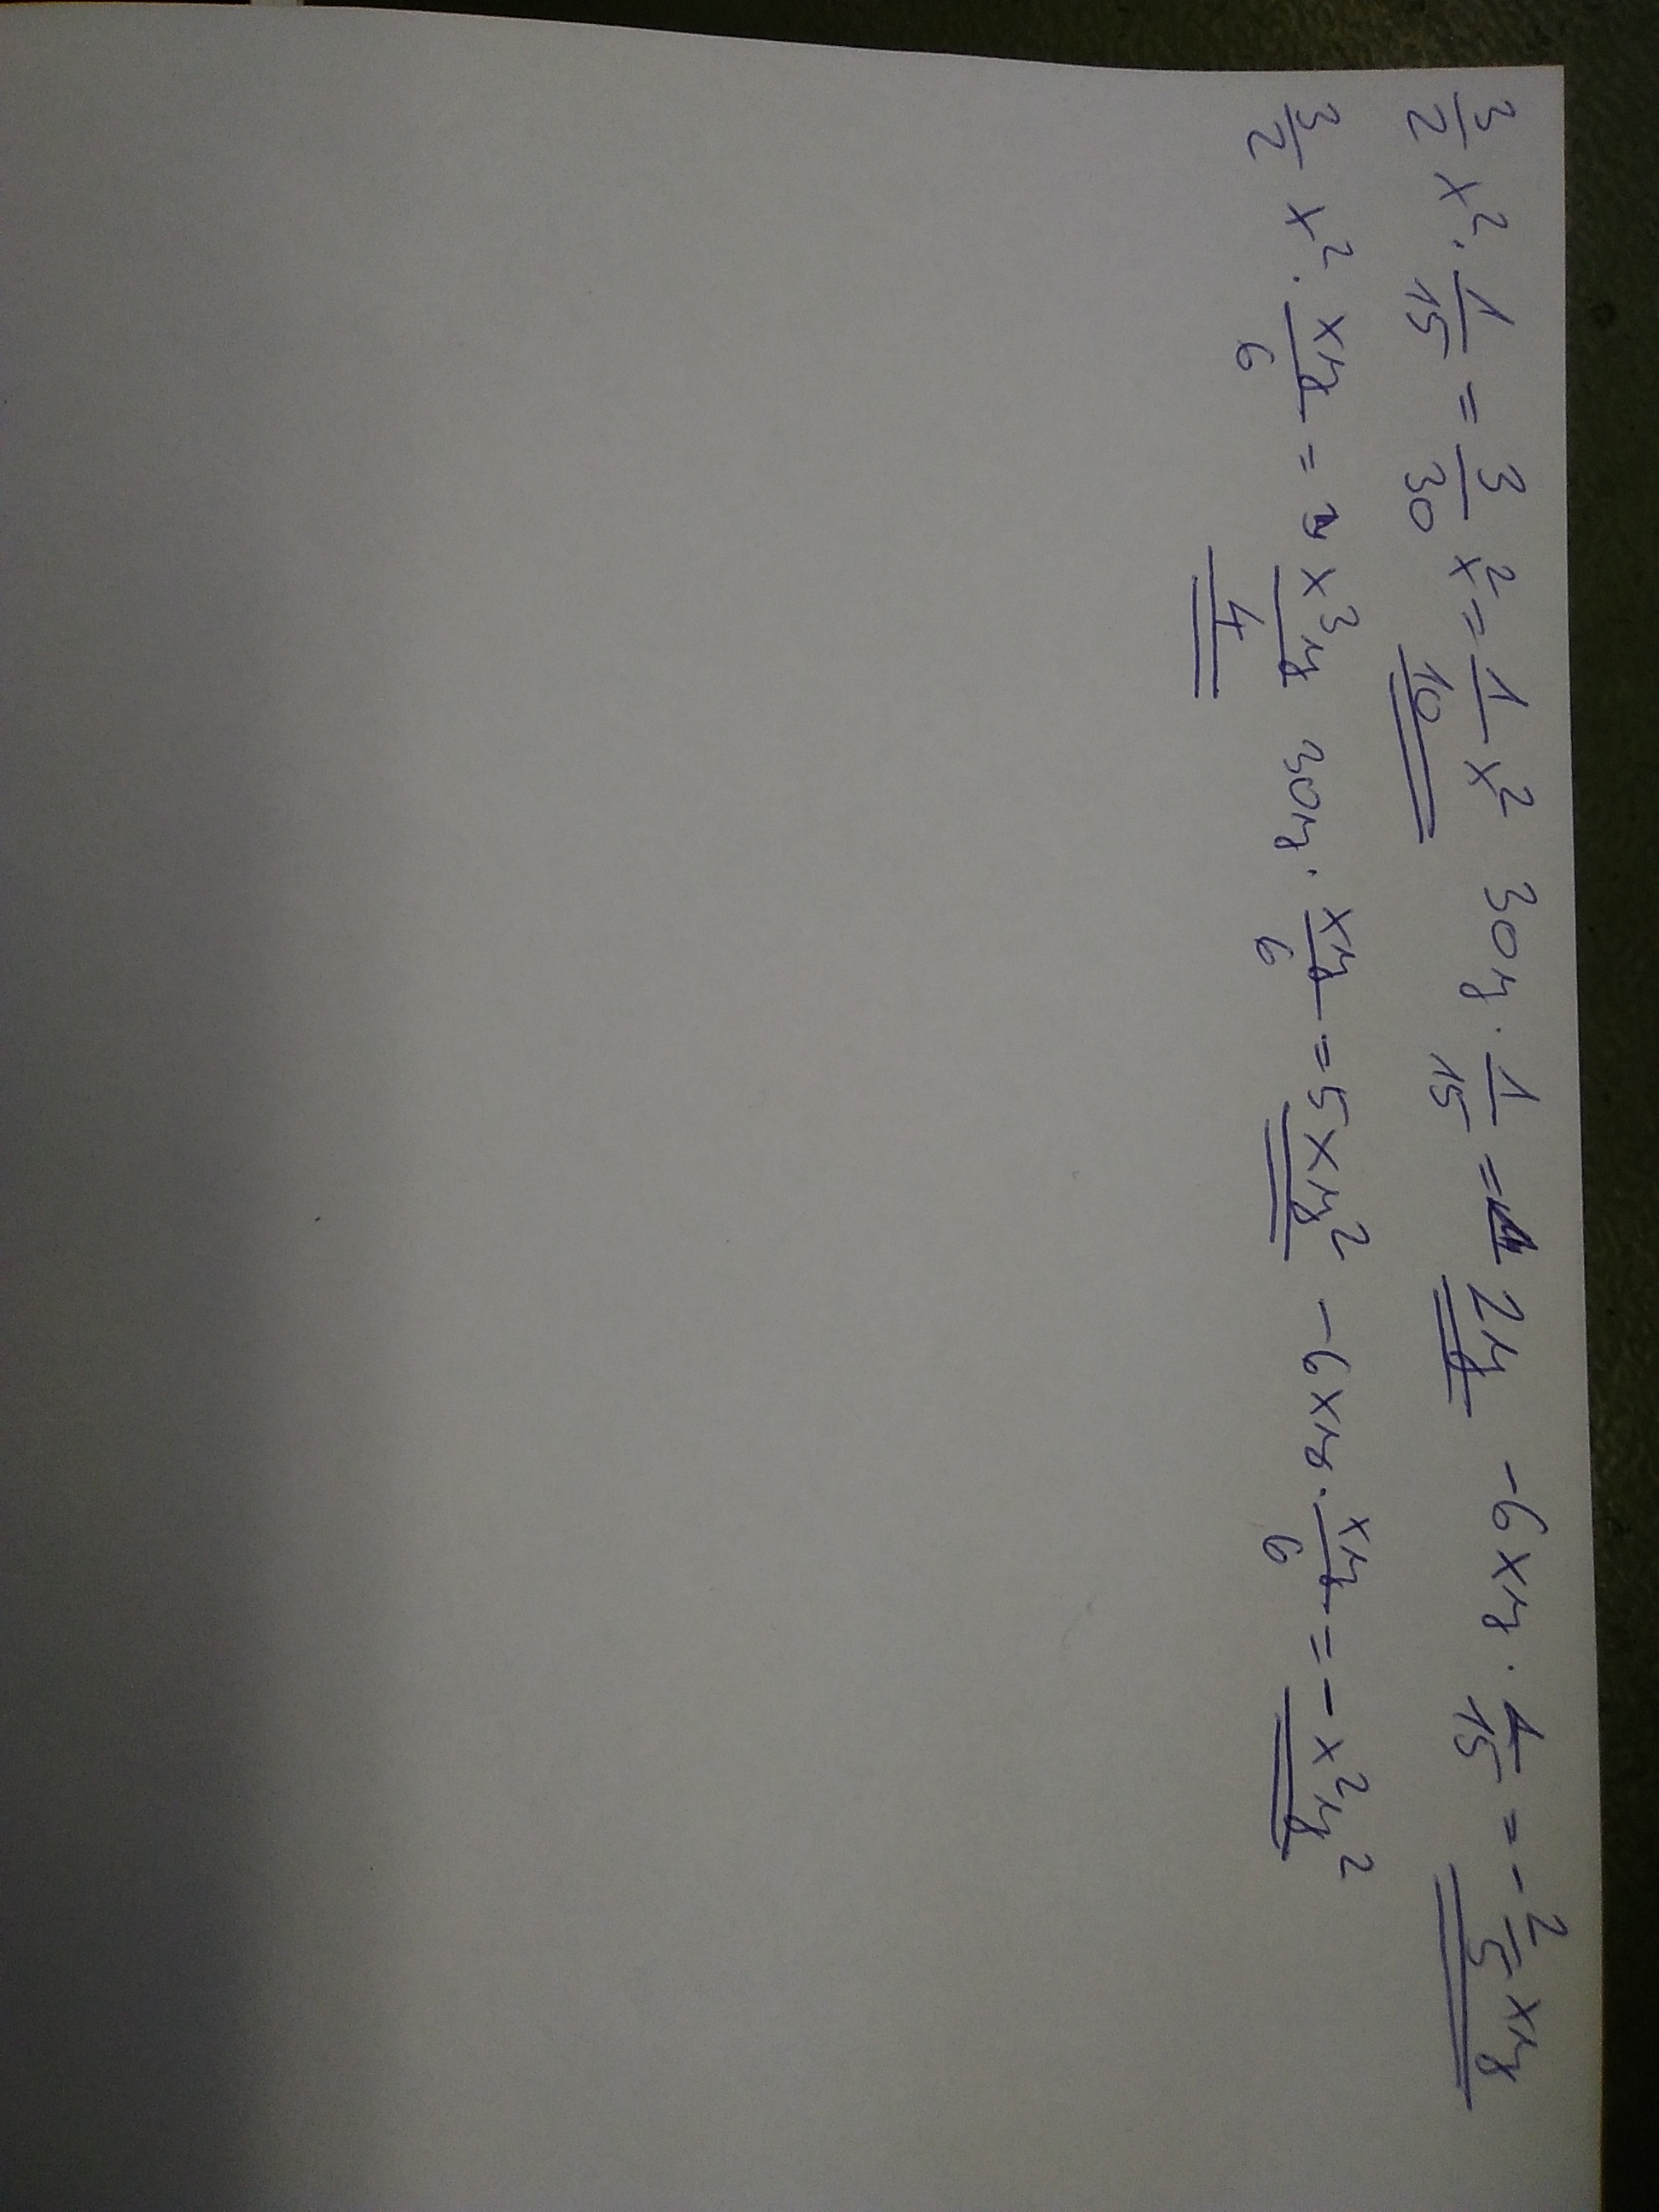 3/2 x² · 1/15 = 3/30 x² = 1/10 x² 30y · 1/15 = 2y -6xy · 1/15 = -2/5 xy
3/2 x² · xy/6 = x³y/4 30y · xy/6 = 5xy² -6xy · xy/6 = -x²y²